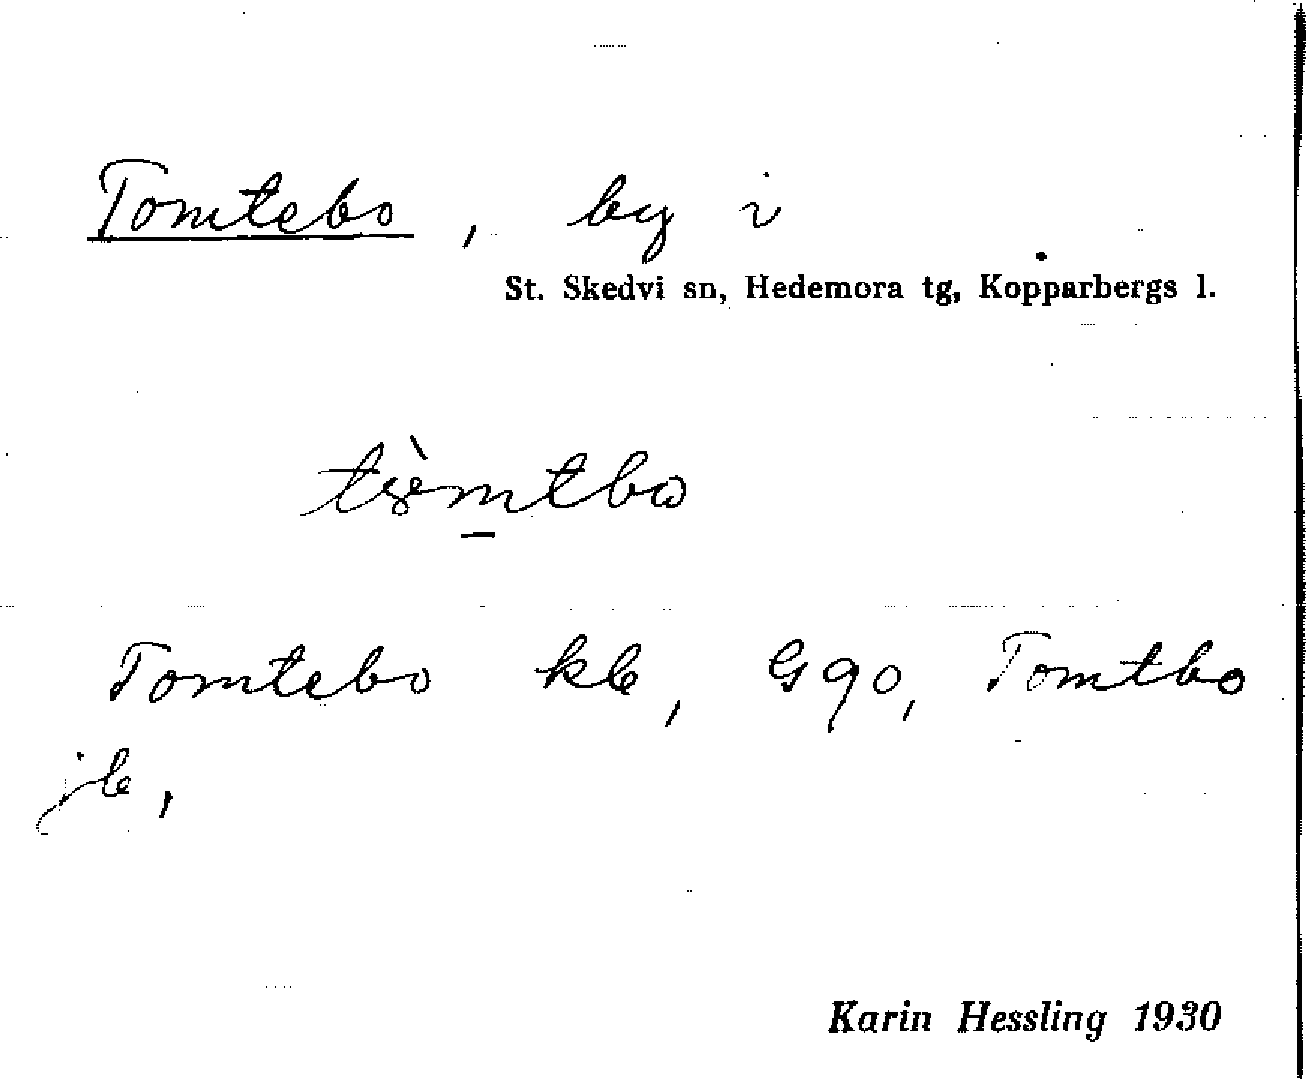 Tomtebo, by i
St. Skedvi sn, Hedemora tg, Kopparbergs l.
Tomtebo kb, G90, Tomtbo
jb,
Karin Hessling 1930